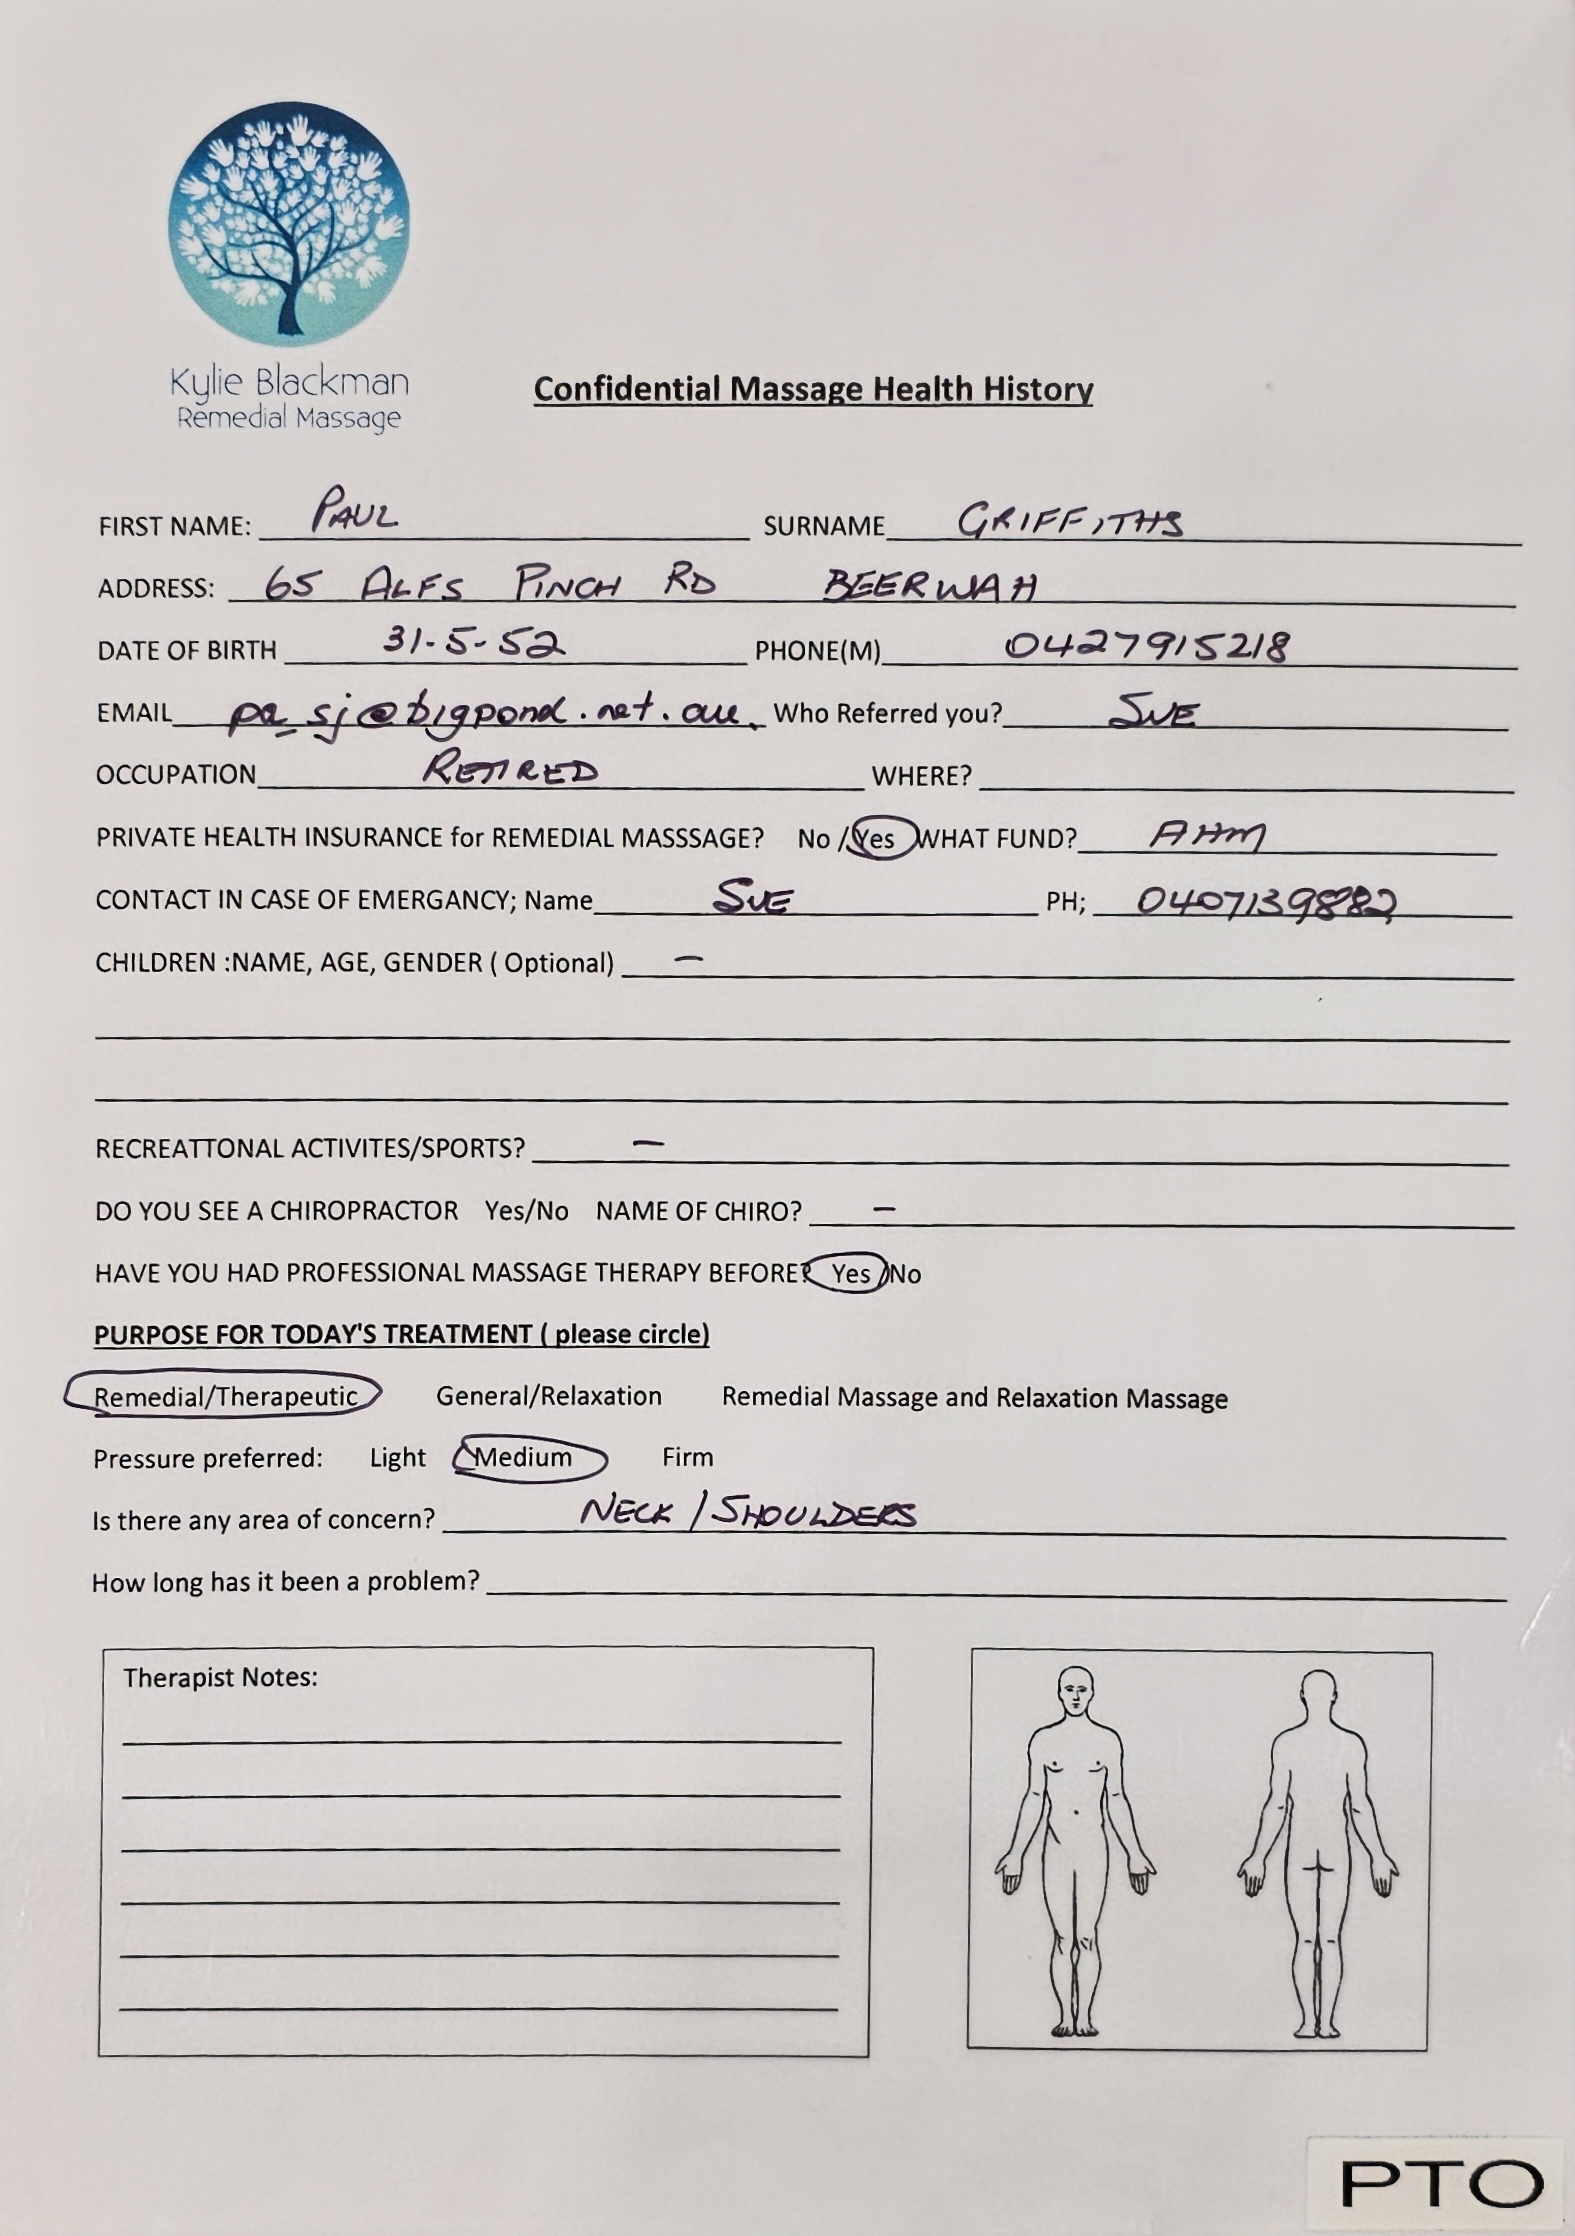 Kylie Blackman
Remedial Massage
Confidential Massage Health History
FIRST NAME: PAUL SURNAME GRIFFITHS
ADDRESS: 65 ALFS PINCH RD BEERWAH
DATE OF BIRTH 31-5-52 PHONE(M) 0427915218
EMAIL pa_sj@bigpond.net.au. Who Referred you? SUE
OCCUPATION RETIRED WHERE?
PRIVATE HEALTH INSURANCE for REMEDIAL MASSSAGE? No / Yes WHAT FUND? AHM
CONTACT IN CASE OF EMERGANCY; Name SUE PH; 0407139882
CHILDREN :NAME, AGE, GENDER ( Optional) –
RECREATTONAL ACTIVITES/SPORTS? –
DO YOU SEE A CHIROPRACTOR Yes/No NAME OF CHIRO? –
HAVE YOU HAD PROFESSIONAL MASSAGE THERAPY BEFORE? Yes /No
PURPOSE FOR TODAY'S TREATMENT ( please circle)
Remedial/Therapeutic General/Relaxation Remedial Massage and Relaxation Massage
Pressure preferred: Light Medium Firm
Is there any area of concern? NECK / SHOULDERS
How long has it been a problem?
Therapist Notes:
PTO